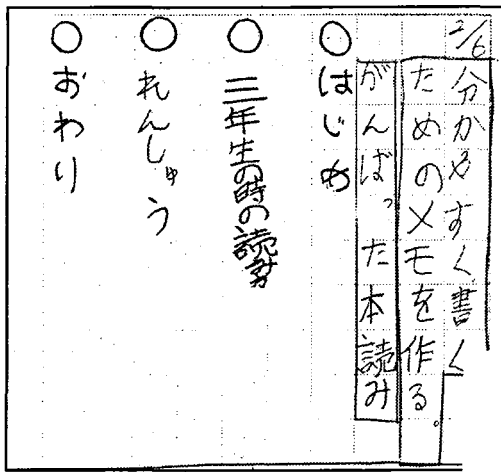 2/6
分かやすく書く
ためのメモを作る。
がんばった本読み
○はじめ
○三年生の時の読み方
○れんしゅう
○おわり